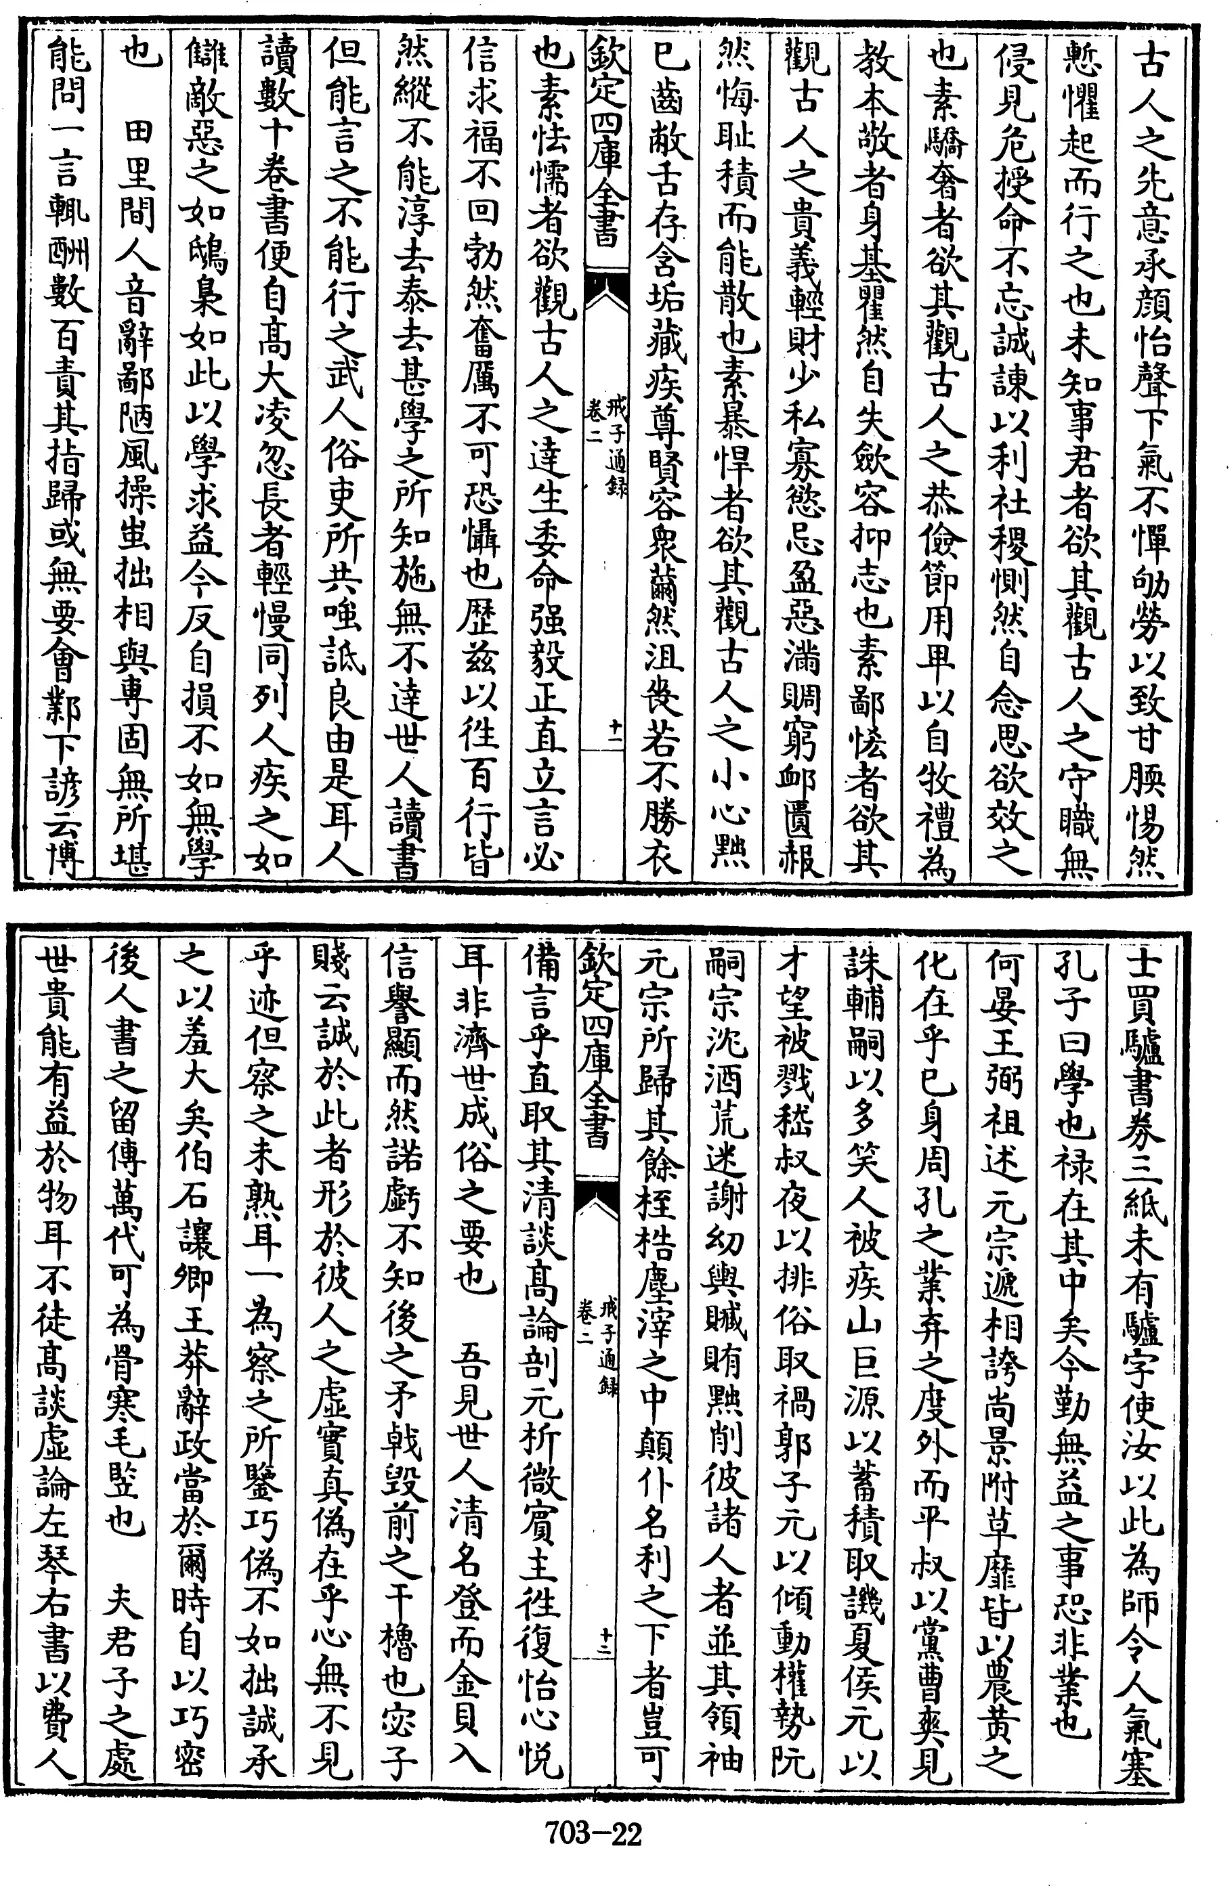 古人之先意承顔怡聲下氣不憚劬勞以致甘腝惕然
慙懼起而行之也未知事君者欲其觀古人之守職無
侵見危授命不忘誠諫以利社稷惻然自念思欲效之
也素驕奢者欲其觀古人之恭儉節用卑以自牧禮為
教本敬者身基瞿然自失歛容抑志也素鄙悋者欲其
觀古人之貴義輕財少私寡慾忌盈惡滿賙窮卹匱赧
然悔耻積而能散也素暴悍者欲其觀古人之小心黜
已齒敝舌存含垢藏疾尊賢容衆薾然沮喪若不勝衣
欽定四庫全書
戒子通録
卷二
十一
也素怯懦者欲觀古人之達生委命强毅正直立言必
信求福不回勃然奮厲不可恐懾也歴兹以徃百行皆
然縱不能淳去泰去甚學之所知施無不達世人讀書
但能言之不能行之武人俗吏所共嗤詆良由是耳人
讀數十卷書便自髙大凌忽長者輕慢同列人疾之如
讎敵惡之如鴟梟如此以學求益今反自損不如無學
也　田里間人音辭鄙陋風操蚩拙相與專固無所堪
能問一言輒酬數百責其指歸或無要會鄴下諺云博
士買驢書券三紙未有驢字使汝以此為師令人氣塞
孔子曰學也禄在其中矣今勤無益之事恐非業也
何晏王弼祖述元宗遞相誇尚景附草靡皆以農黄之
化在乎已身周孔之業弃之度外而平叔以黨曹爽見
誅輔嗣以多笑人被疾山巨源以蓄積取譏夏侯元以
才望被戮嵇叔夜以排俗取禍郭子元以傾動權勢阮
嗣宗沈酒荒迷謝幼輿贓賄黜削彼諸人者並其領袖
元宗所歸其餘桎梏塵滓之中顛仆名利之下者豈可
欽定四庫全書
戒子通録
卷二
十二
備言乎直取其清談髙論剖元析微賓主徃復怡心悦
耳非濟世成俗之要也　吾見世人清名登而金貝入
信譽顯而然諾虧不知後之矛戟毁前之干櫓也宓子
賤云誠於此者形於彼人之虛實真偽在乎心無不見
乎迹但察之未熟耳一為察之所鑒巧偽不如拙誠承
之以羞大矣伯石讓卿王莽辭政當於爾時自以巧密
後人書之留傳萬代可為骨寒毛竪也　夫君子之處
世貴能有益於物耳不徒髙談虛論左琴右書以費人
703-22